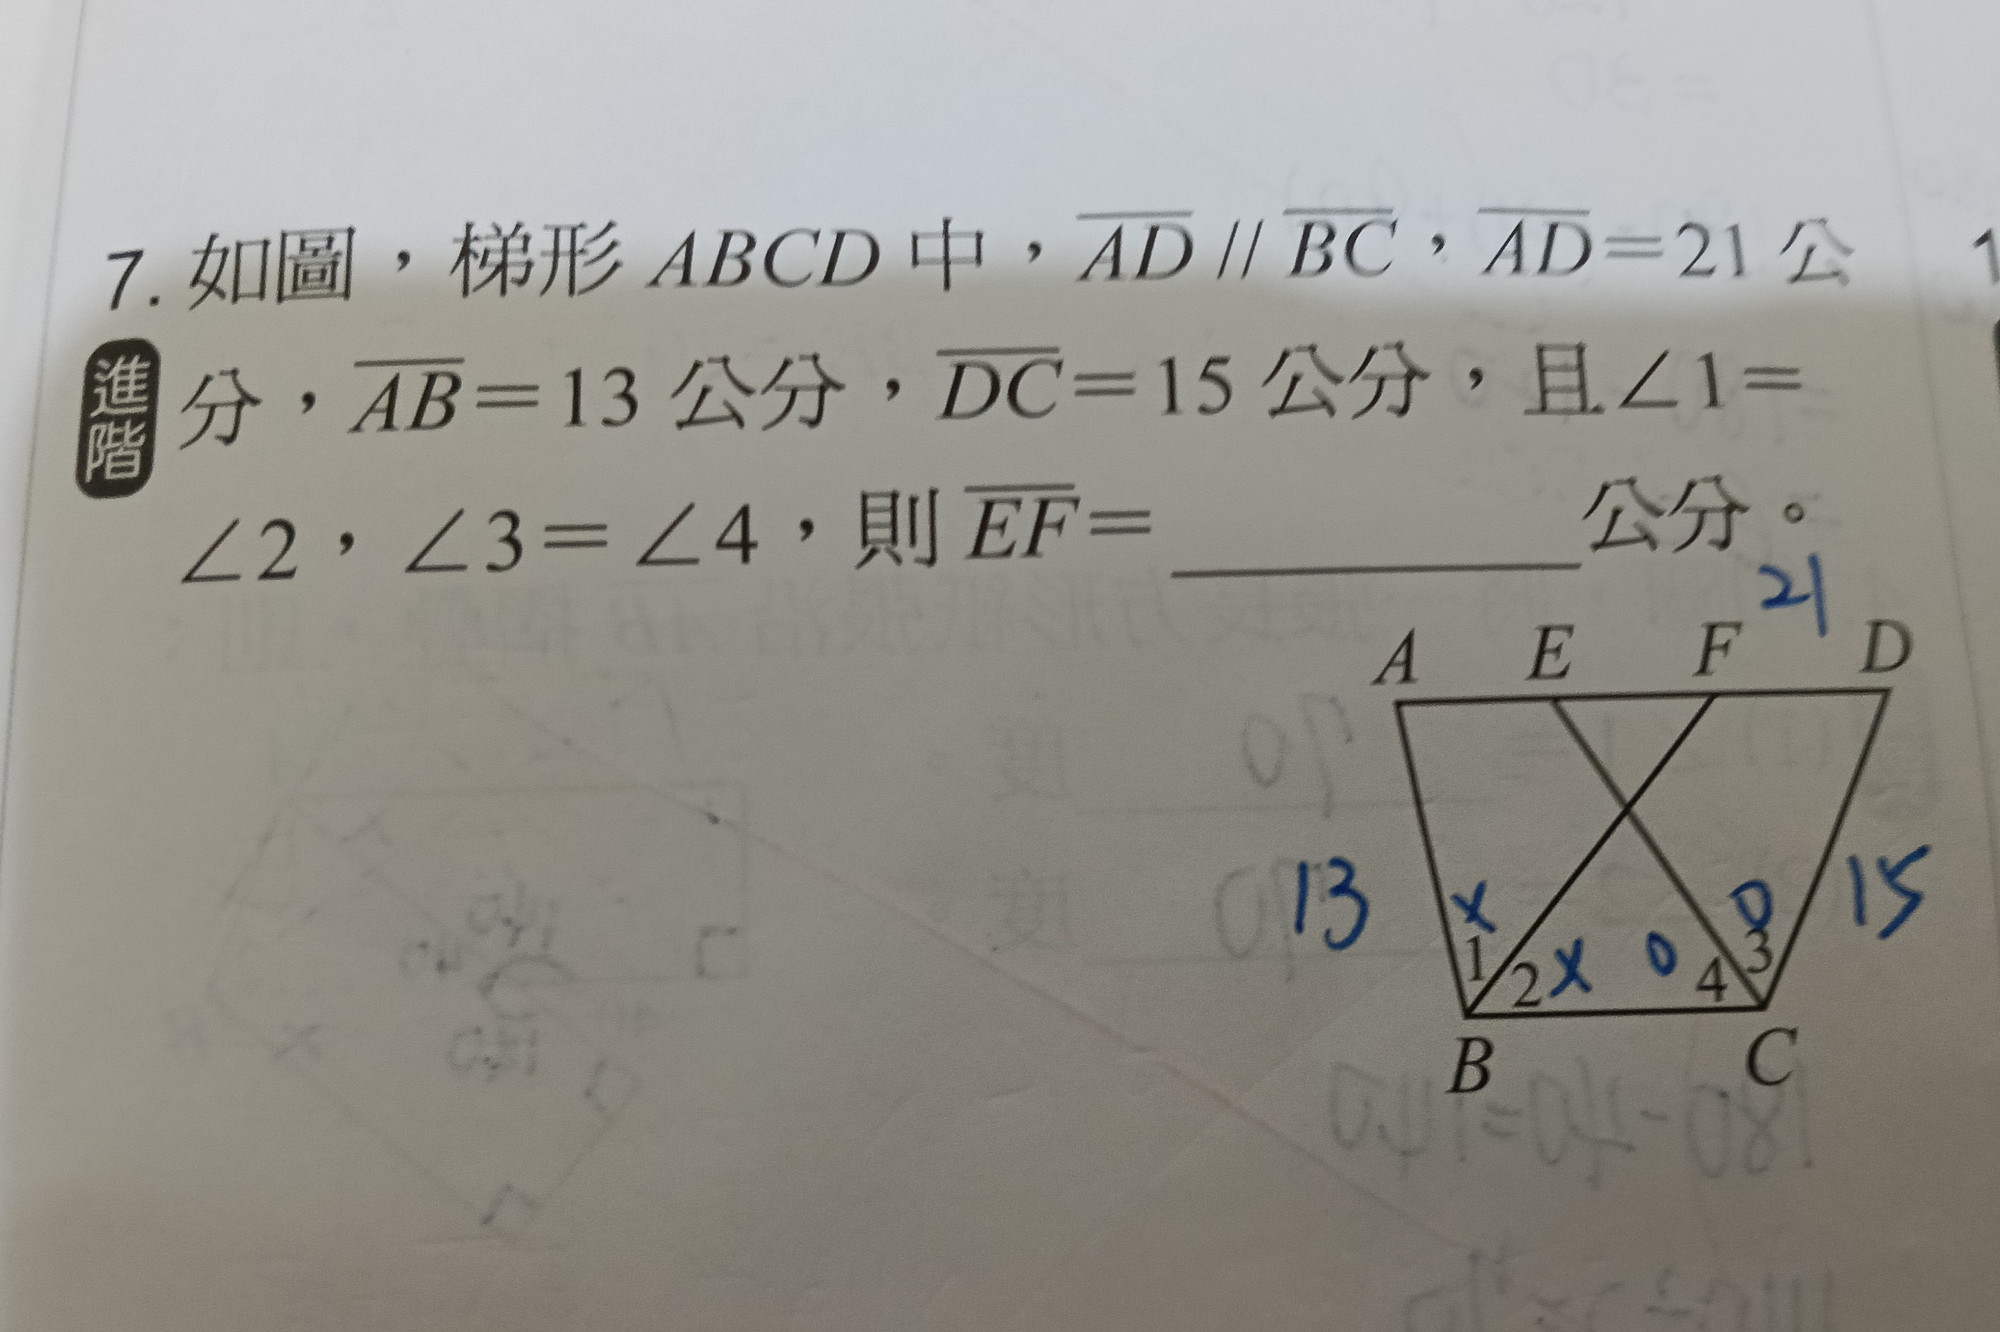 7. 如圖，梯形 ABCD 中，AD // BC，AD＝21 公
進階
分，AB＝13 公分，DC＝15 公分，且∠1＝
∠2，∠3＝∠4，則 EF＝________公分。
21
A E F D
13 x 0 15
1 2 x 0 4 3
B C